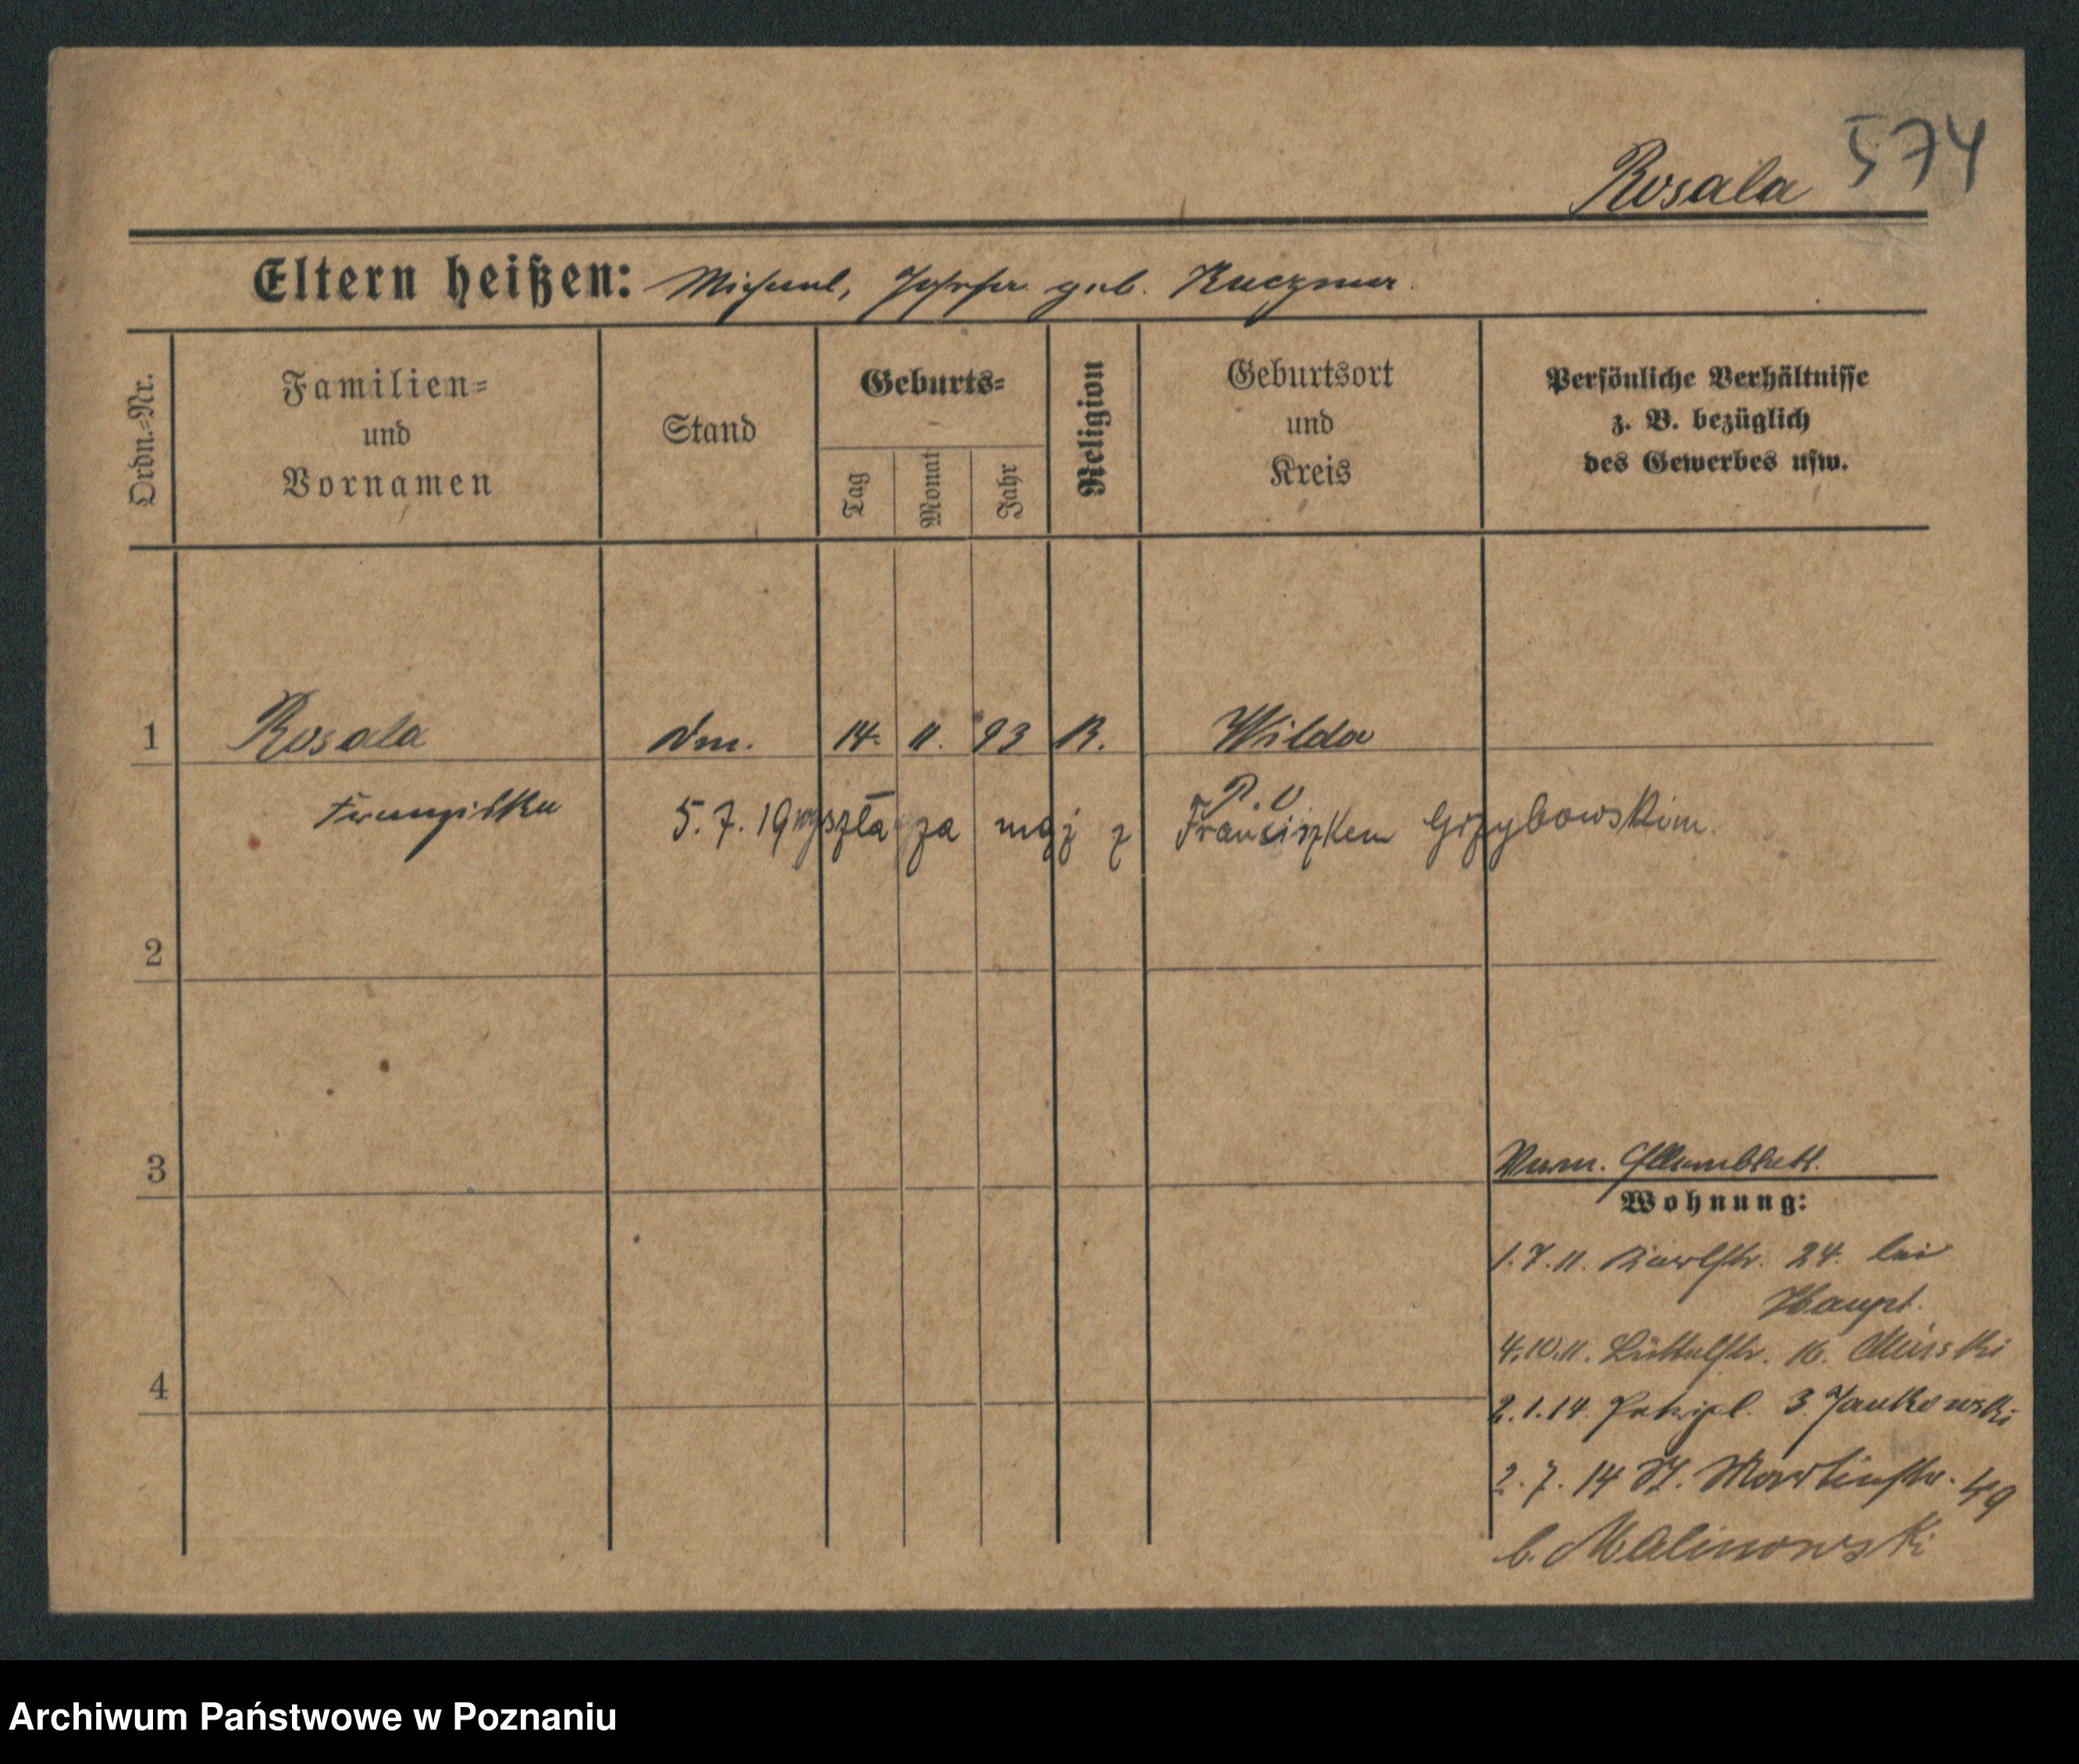 574
Rosala
Eltern heißen: Michael, Josefa geb. Kuczmer.
Ordn.-Nr.
Familien-
und
Vornamen
Stand
Geburts-
Tag
Monat
Jahr
Religion
Geburtsort
und
Kreis
Persönliche Verhältnisse
z. B. bezüglich
des Gewerbes usw.
1 Rosala 14. 11. 93 K. Wilda
P. O
Franziska 5. 7. 19 wyszła za mąż z Franciszkem Grzybowskim.
2
3
Wohnung:
1.7.11. Karlstr. 24. bei
Haupt.
4
4.10.11. 16.
2.1.14. Petripl. 3. Jankowski
2.7.14 St. Martinstr. 49
b. Malinowski
Archiwum Państwowe w Poznaniu